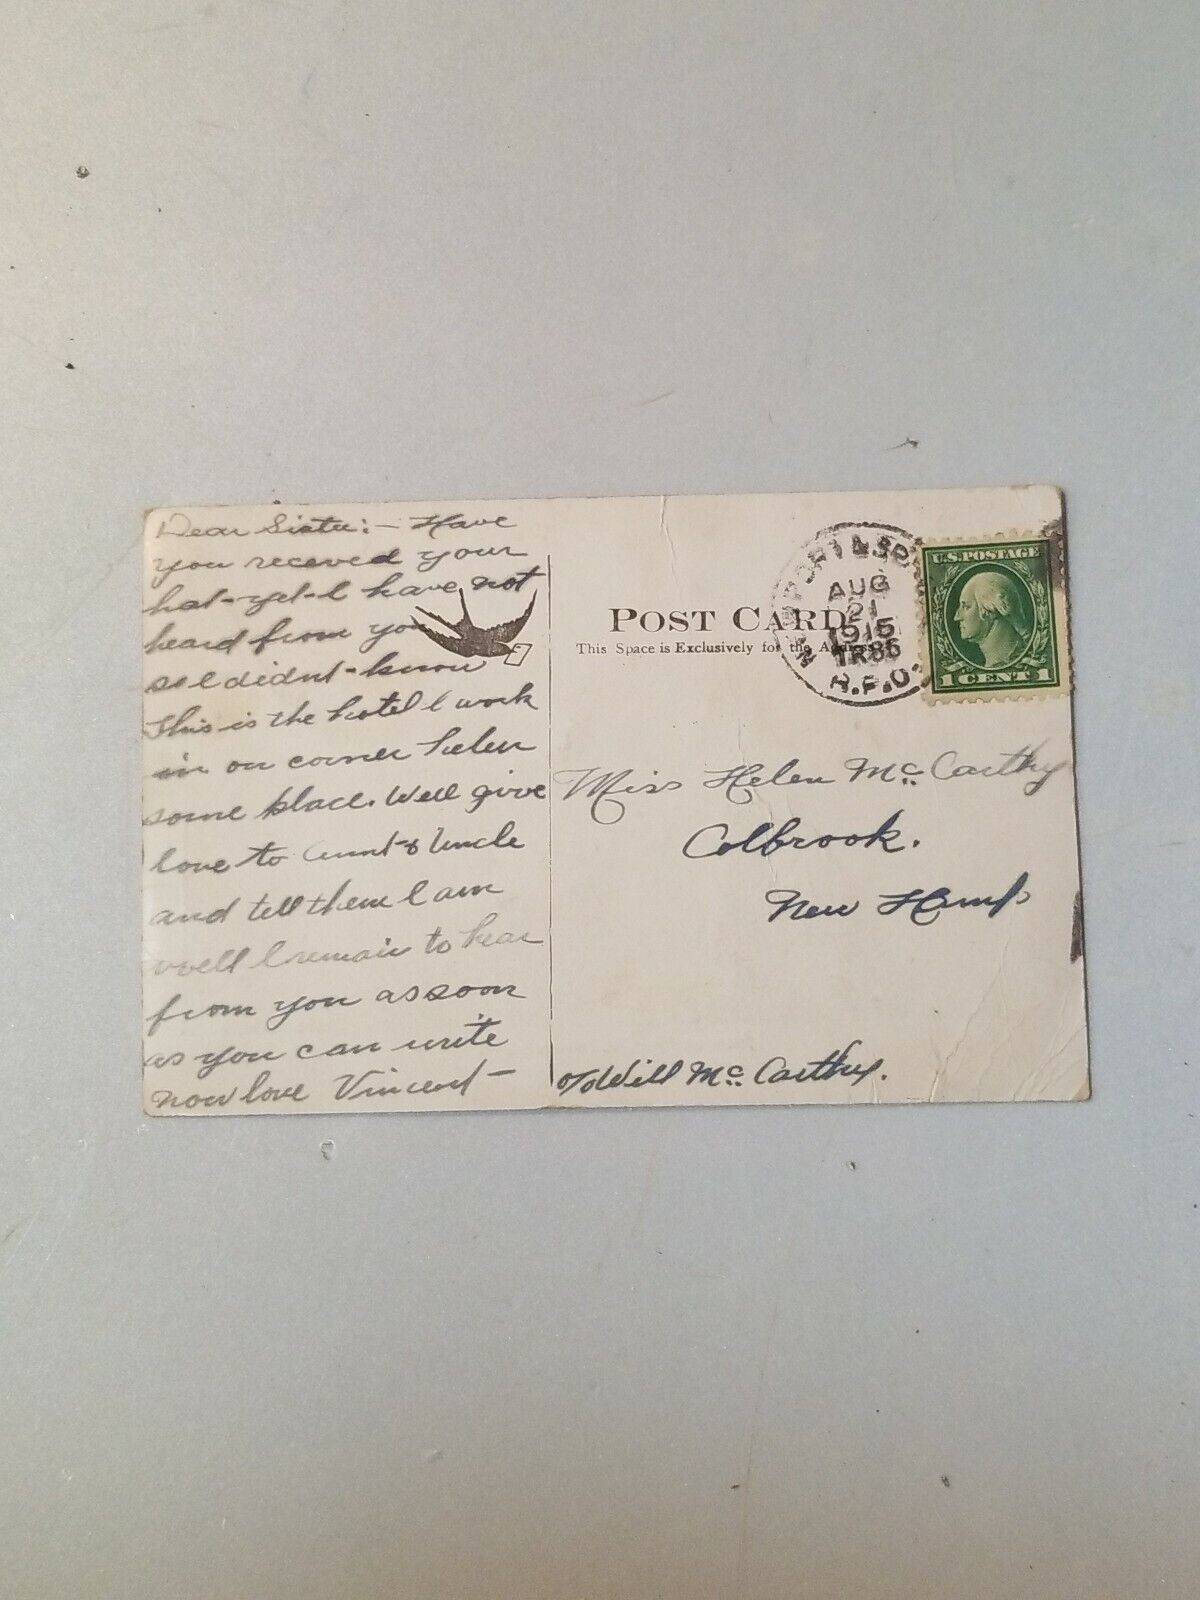 Dear Sister:- Have
you receved your
hat-yet-I have not
heard from you
so I didnt-know
This is the hotel I work
in on corner Helen
some place. Well give
love to Aunt & Uncle
and tell them I am
well I remain to hear
from you as soon
as you can write
now love Vincent-
POST CARD
This Space is Exclusively for the Address
NEWPORT & SP
AUG
21
1915
TR86
R.P.O.
U.S. POSTAGE
1 CENT 1
Miss Helen Mc Carthy
Colbrook.
New Hamp
c/o Will Mc Carthy.